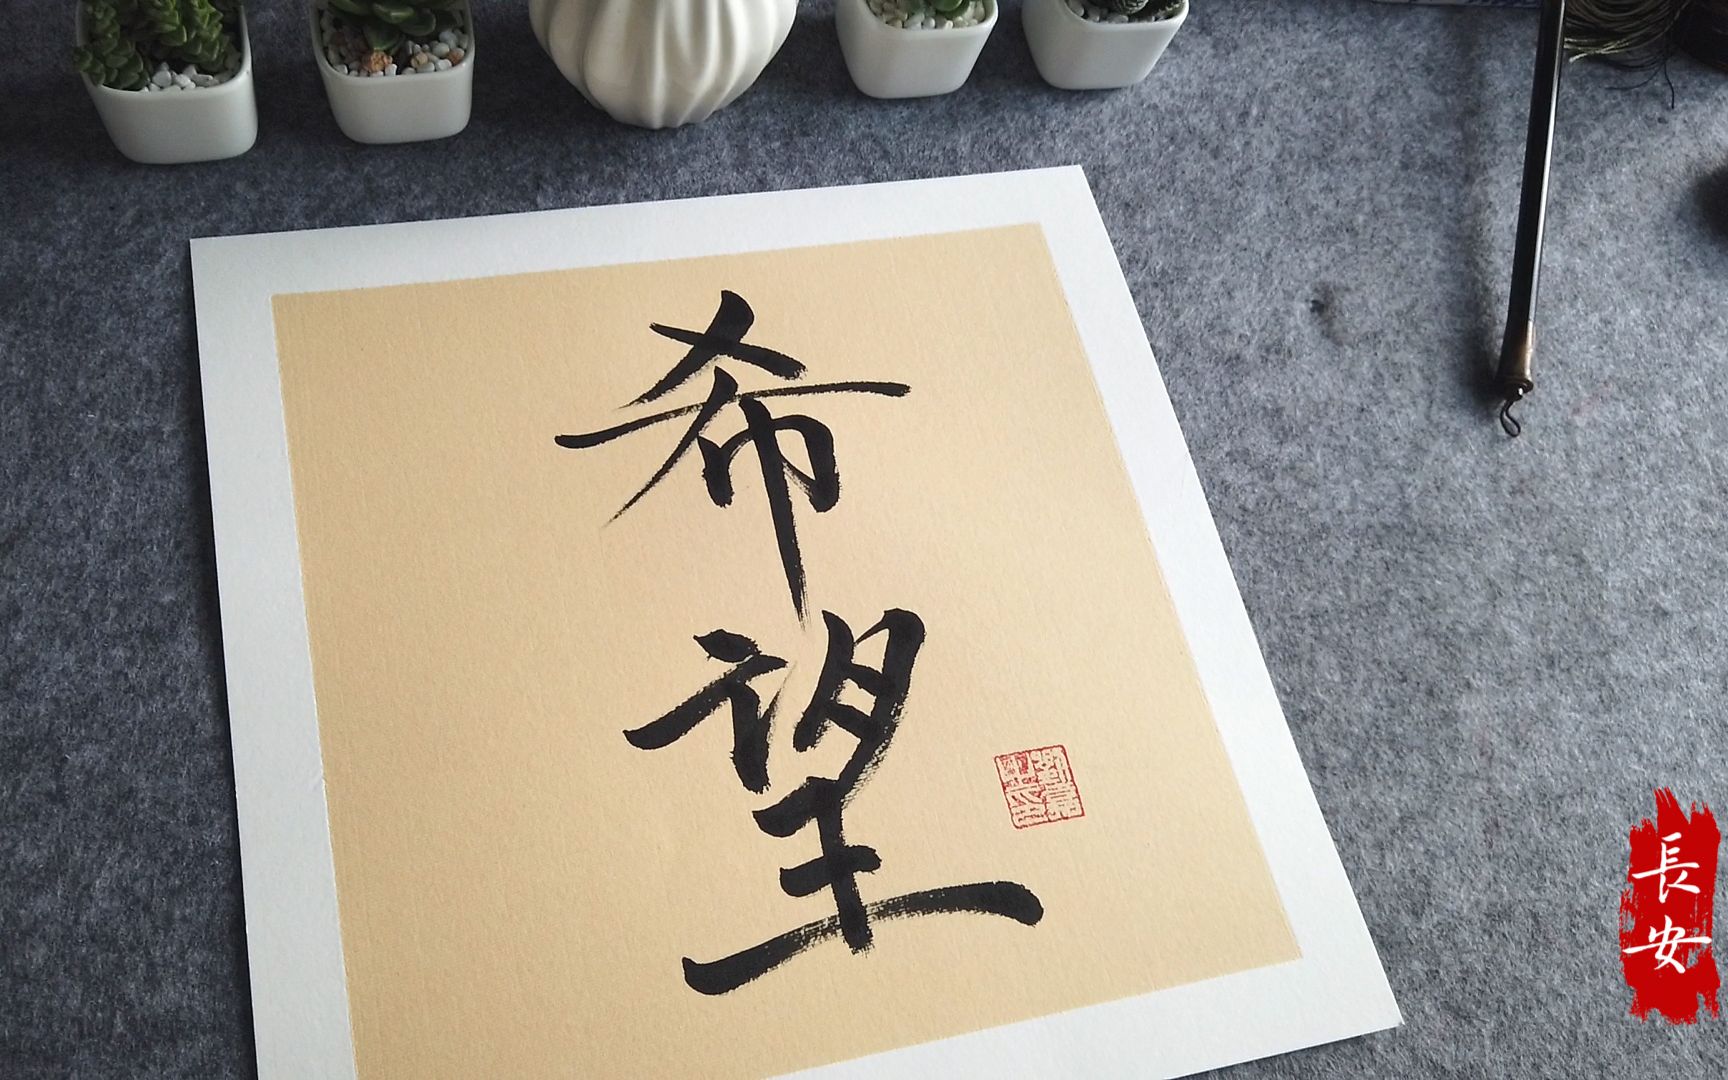 希望
長安